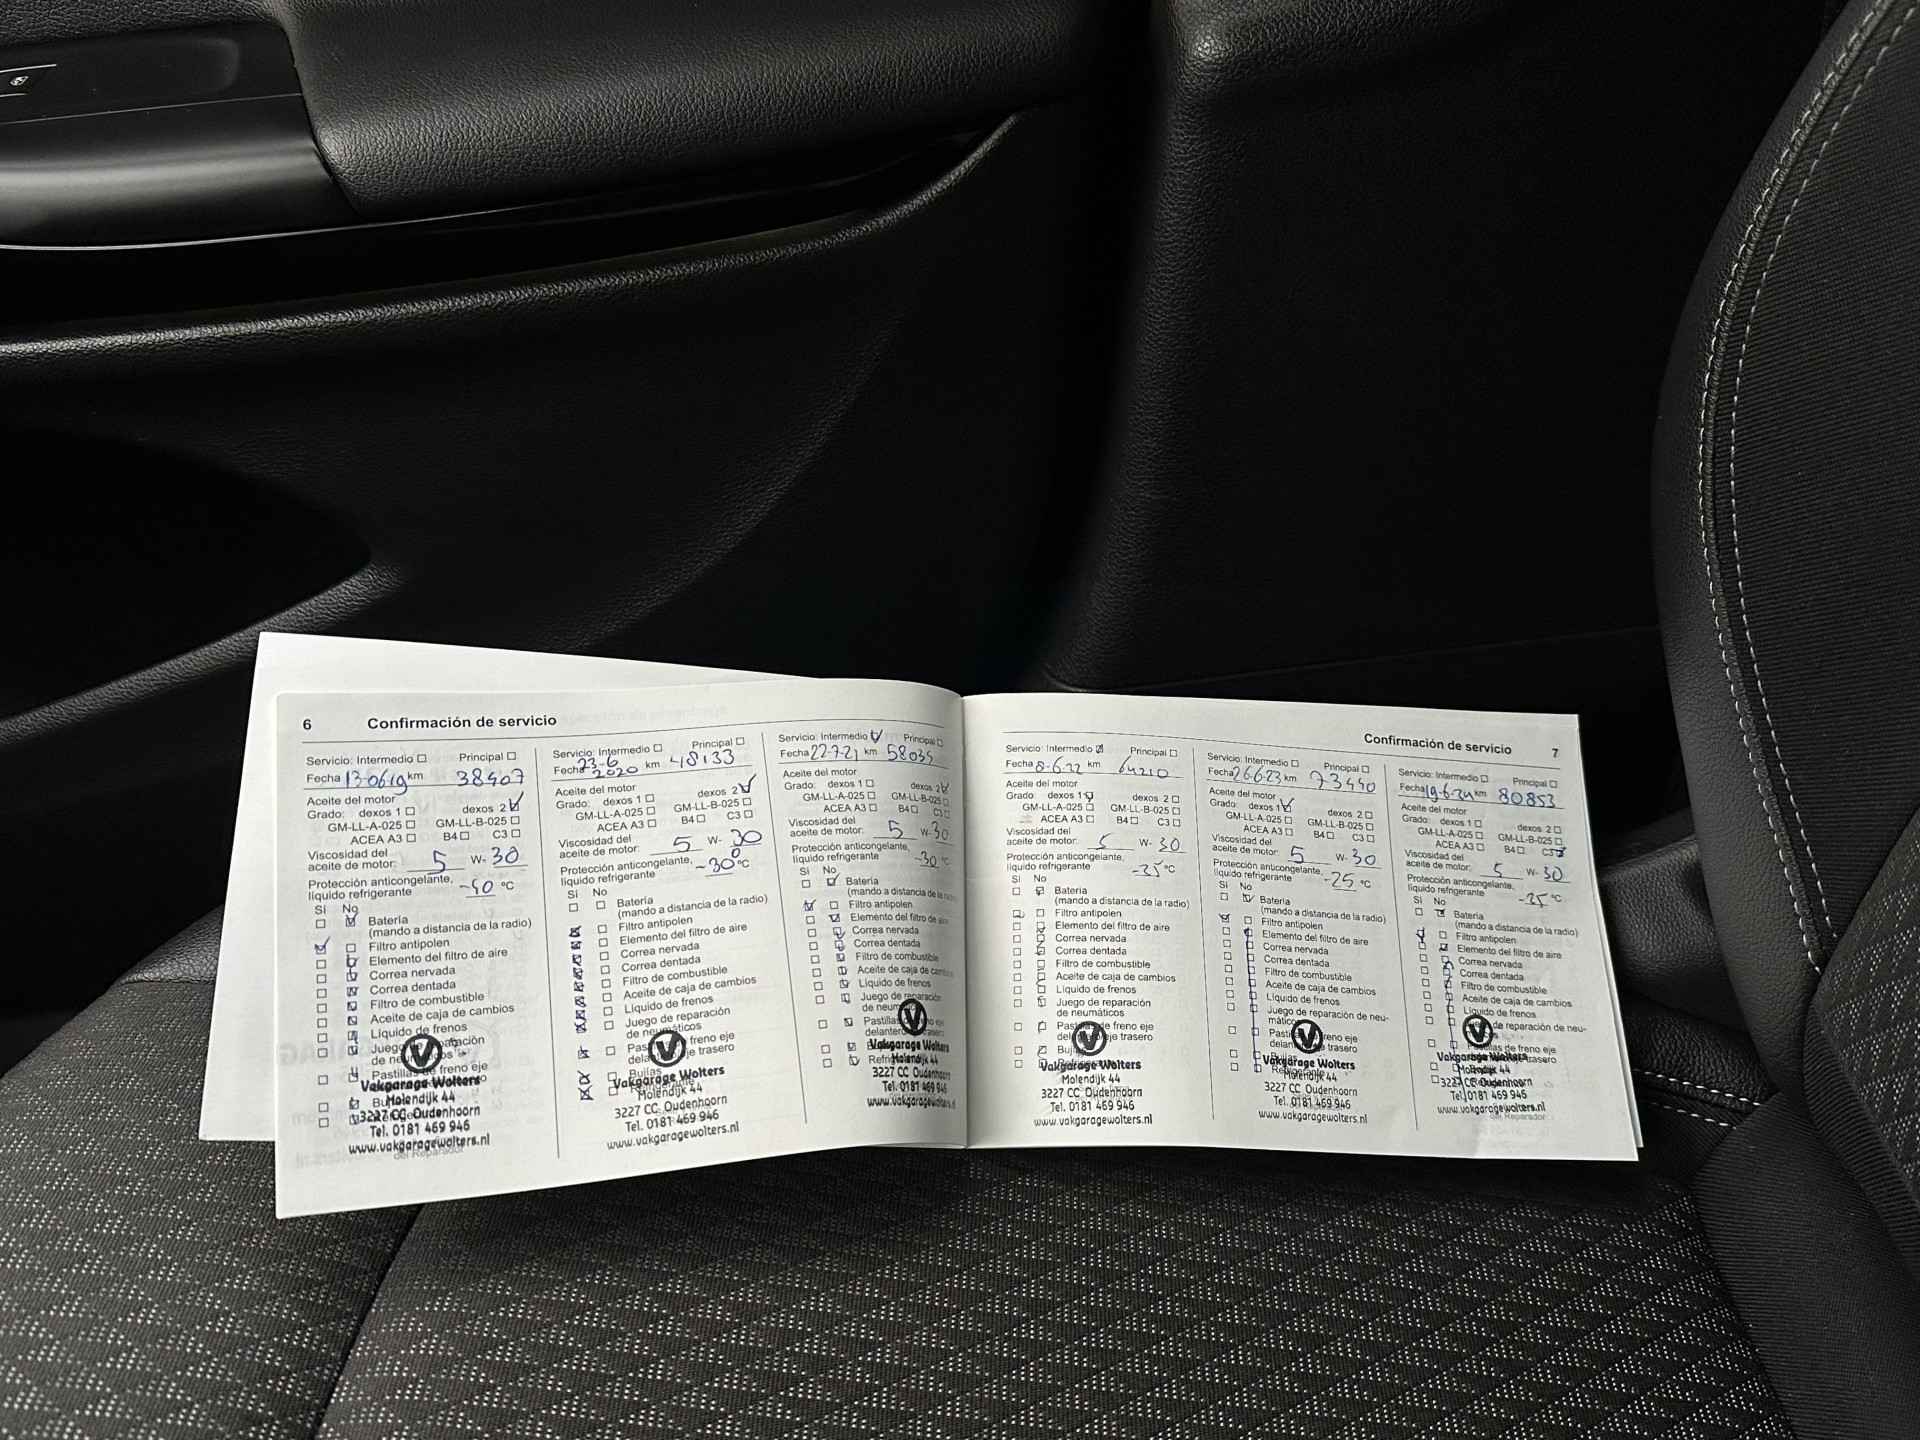 6 Confirmación de servicio
Servicio: Intermedio Principal
Fecha 13-06-19 km 38407
Aceite del motor
Grado: dexos 1 dexos 2
GM-LL-A-025 GM-LL-B-025
ACEA A3 B4 C3
Viscosidad del
aceite de motor: 5 W- 30
Protección anticongelante,
líquido refrigerante -40 °C
Sí No
Batería
(mando a distancia de la radio)
Filtro antipolen
Elemento del filtro de aire
Correa nervada
Correa dentada
Filtro de combustible
Aceite de caja de cambios
Líquido de frenos
Vakgarage Wolters
Molendijk 44
3227 CC Oudenhoorn
Tel. 0181 469 946
www.vakgaragewolters.nl
del Reparador
Servicio: Intermedio Principal
Fecha 23-6 2020 km 48133
Aceite del motor
Grado: dexos 1 dexos 2
GM-LL-A-025 GM-LL-B-025
ACEA A3 B4 C3
Viscosidad del
aceite de motor: 5 W- 30
Protección anticongelante,
líquido refrigerante -30 °C
Sí No
Batería
(mando a distancia de la radio)
Filtro antipolen
Elemento del filtro de aire
Correa nervada
Correa dentada
Filtro de combustible
Aceite de caja de cambios
Líquido de frenos
Juego de reparación
de neumáticos
Bujías
Vakgarage Wolters
Molendijk 44
3227 CC Oudenhoorn
Tel. 0181 469 946
www.vakgaragewolters.nl
Servicio: Intermedio Principal
Fecha 22-7-21 km 58035
Aceite del motor
Grado: dexos 1 dexos 2
GM-LL-A-025 GM-LL-B-025
ACEA A3 B4 C3
Viscosidad del
aceite de motor: 5 W- 30
Protección anticongelante,
líquido refrigerante -30 °C
Sí No
Batería
(mando a distancia de la
Filtro antipolen
Elemento del filtro de aire
Correa nervada
Correa dentada
Filtro de combustible
Aceite de caja de
Líquido de frenos
Juego de reparación
Vakgarage Wolters
Molendijk 44
3227 CC Oudenhoorn
Tel. 0181 469 946
www.vakgaragewolters.nl
Confirmación de servicio 7
Servicio: Intermedio Principal
Fecha 8-6-22 km 64210
Aceite del motor
Grado: dexos 1 dexos 2
GM-LL-A-025 GM-LL-B-025
ACEA A3 B4 C3
Viscosidad del
aceite de motor: 5 W- 30
Protección anticongelante,
líquido refrigerante -25 °C
Sí No
Batería
(mando a distancia de la radio)
Filtro antipolen
Elemento del filtro de aire
Correa nervada
Correa dentada
Filtro de combustible
Aceite de caja de cambios
Líquido de frenos
Juego de reparación
de neumáticos
Vakgarage Wolters
Molendijk 44
3227 CC Oudenhoorn
Tel. 0181 469 946
www.vakgaragewolters.nl
Servicio: Intermedio Principal
Fecha 26-6-23 km 73440
Aceite del motor
Grado: dexos 1 dexos 2
GM-LL-A-025 GM-LL-B-025
ACEA A3 B4 C3
Viscosidad del
aceite de motor: 5 W- 30
Protección anticongelante,
líquido refrigerante -25 °C
Sí No
Batería
(mando a distancia de la radio)
Filtro antipolen
Elemento del filtro de aire
Correa nervada
Correa dentada
Filtro de combustible
Aceite de caja de cambios
Líquido de frenos
Juego de reparación de neu-
Vakgarage Wolters
Molendijk 44
3227 CC Oudenhoorn
Tel. 0181 469 946
www.vakgaragewolters.nl
Servicio: Intermedio Principal
Fecha 19-6-24 km 80853
Aceite del motor
Grado: dexos 1 dexos 2
GM-LL-A-025 GM-LL-B-025
ACEA A3 B4 C3
Viscosidad del
aceite de motor: 5 W- 30
Protección anticongelante,
líquido refrigerante -25 °C
Sí No
Batería
(mando a distancia de la radio)
Filtro antipolen
Elemento del filtro de aire
Correa nervada
Correa dentada
Filtro de combustible
Aceite de caja de cambios
Líquido de frenos
Juego de reparación de neu-
Vakgarage Wolters
Molendijk 44
3227 CC Oudenhoorn
Tel. 0181 469 946
www.vakgaragewolters.nl
del Reparador